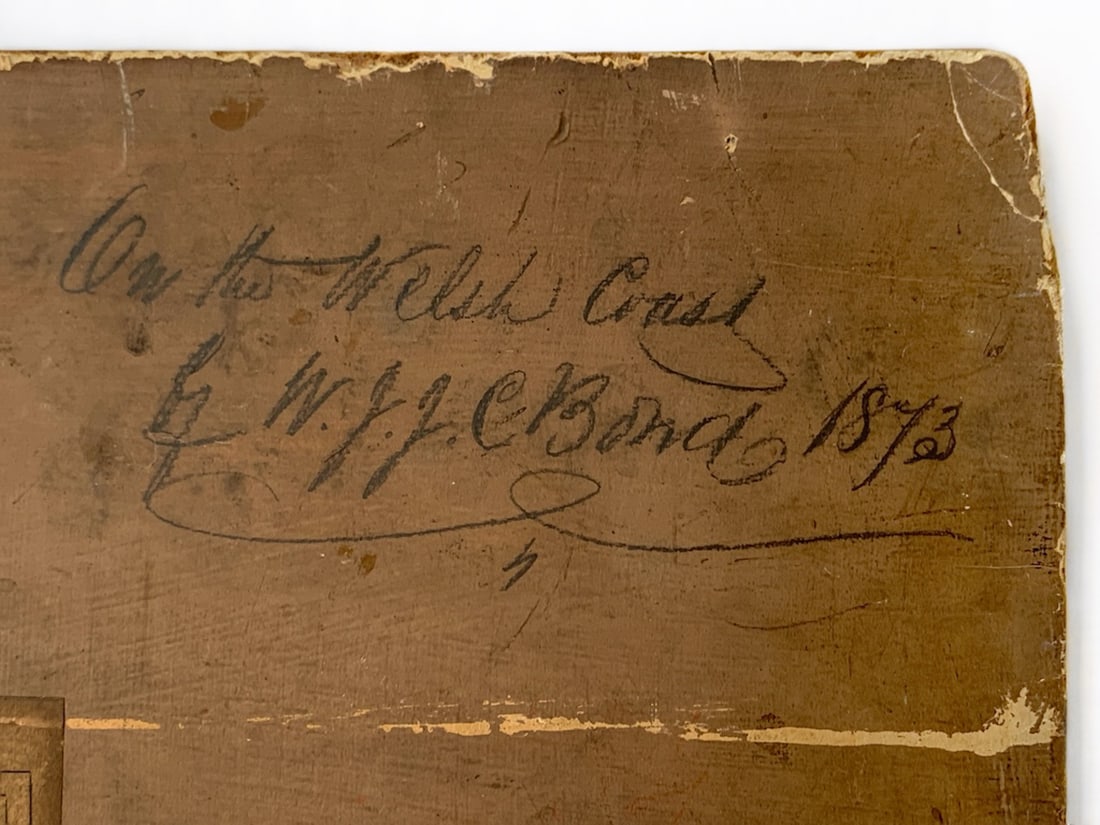 On the Welsh Coast
by W.J.J.C Bond 1873